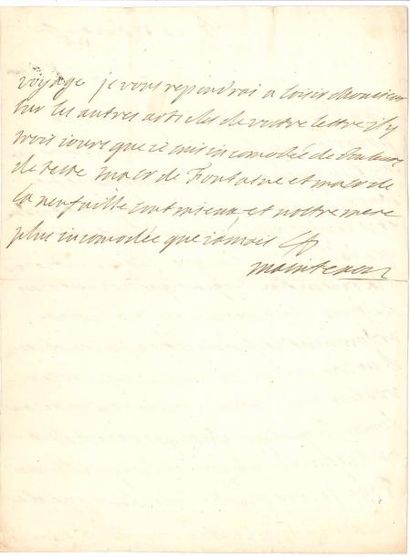 voyage je vous repondrai a loisir Monsieur
sur les autres articles de vostre lettre il y
trois jours que je suis incomodée de douleurs
de teste mad de Fontaine et mad de
la neufuille sont mieux et nostre mere
plus incomodée que jamais
maintenon